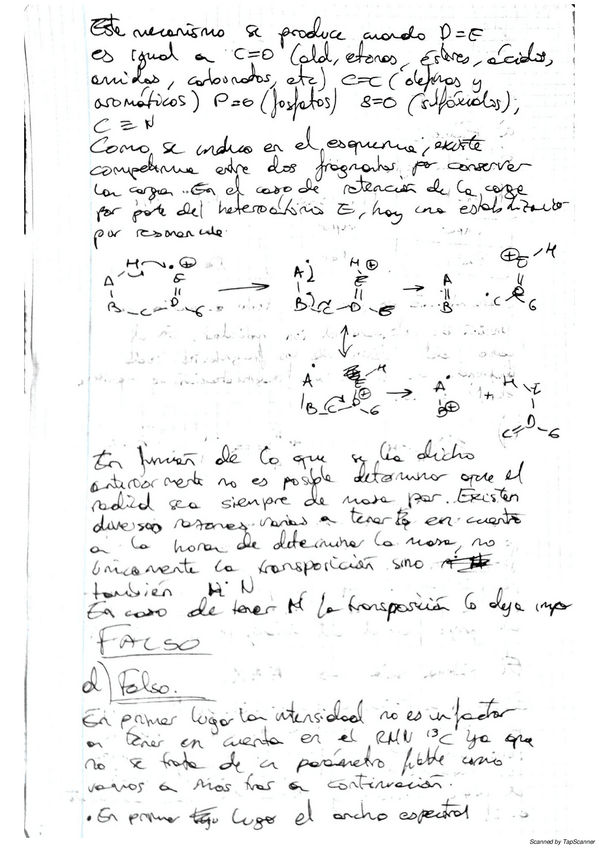 Este mecanismo se produce cuando D=E
es igual a C=O (ald, cetonas, ésteres, ácidos,
amidas, carbonatos, etc) C=C (olefinas y
aromáticos) P=O (fosfatos) S=O (sulfóxidos),
C≡N
Como se indica en el esquema, existe
competencia entre dos fragmentos por conservar
la carga. En el caso de retención de la carga
por parte del heteroátomo E, hay una estabilización
por resonancia
H ⊕
A E
B C D G
A H ⊕ E
B C D
A B
⊕ E H
C D G
A H
B C D ⊕ G
A B ⊕
+
H E
C = D G
En función de lo que se ha dicho
anteriormente no es posible determinar que el
radical sea siempre de masa par. Existen
diversas razones varias a tener en cuenta
a la hora de determinar la masa, no
únicamente la transposición sino
también N
En caso de tener N la transposición lo deja impar
FALSO
d) Falso.
En primer lugar la intensidad no es un factor
a tener en cuenta en el RMN ¹³C ya que
no se trata de un parámetro fiable como
vamos a mostrar a continuación.
• En primer lugar el ancho espectral
Scanned by TapScanner